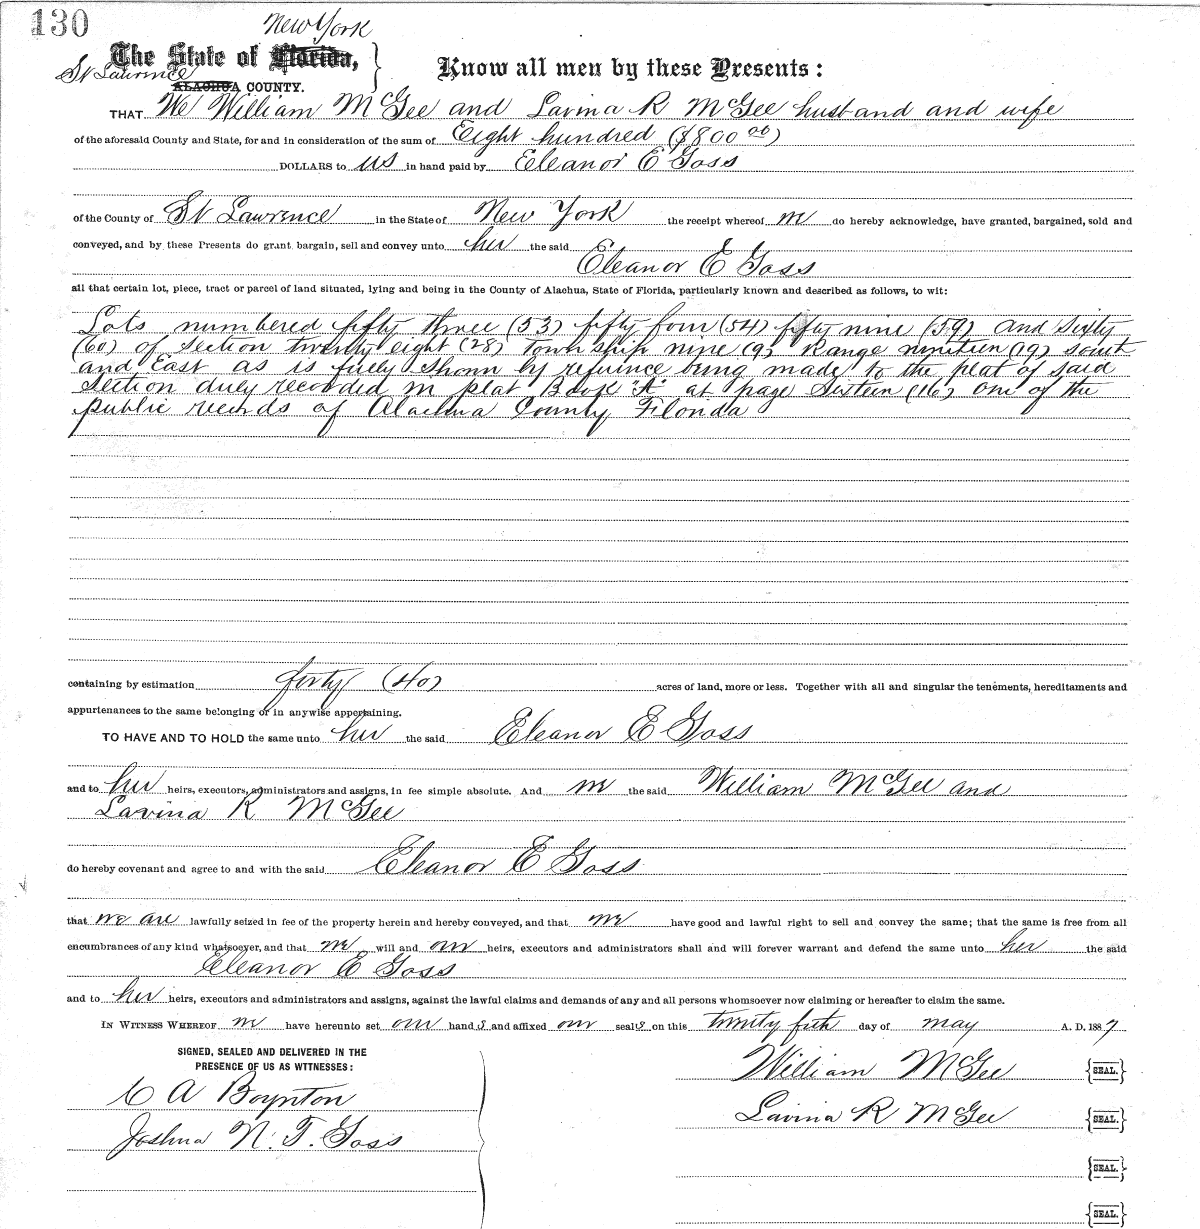 130
New York
The State of Florida,
St Lawrence
ALACHUA COUNTY.
Know all men by these Presents:
THAT We William McGee and Lavina R McGee husband and wife
of the aforesaid County and State, for and in consideration of the sum of Eight hundred ($800 00)
DOLLARS to us in hand paid by Eleanor E Goss
of the County of St Lawrence in the State of New York the receipt whereof we do hereby acknowledge, have granted, bargained, sold and
conveyed, and by these Presents do grant, bargain, sell and convey unto her the said
Eleanor E Goss
all that certain lot, piece, tract or parcel of land situated, lying and being in the County of Alachua, State of Florida, particularly known and described as follows, to wit:
Lots numbered fifty three (53) fifty four (54) fifty nine (59) and Sixty
(60) of Section twenty eight (28) Township nine (9) Range nineteen (19) South
and East as is fully shown by refrence being made to the plat of said
Section duly recorded in plat Book "A" at page Sixteen (16) one of the
public records of Alachua County Florida
containing by estimation forty (40) acres of land, more or less. Together with all and singular the tenements, hereditaments and
appurtenances to the same belonging or in anywise appertaining.
TO HAVE AND TO HOLD the same unto her the said Eleanor E Goss
and to her heirs, executors, administrators and assigns, in fee simple absolute. And we the said William McGee and
Lavina R McGee
do hereby covenant and agree to and with the said Eleanor E Goss
that we are lawfully seized in fee of the property herein and hereby conveyed, and that we have good and lawful right to sell and convey the same; that the same is free from all
encumbrances of any kind whatsoever, and that we will and our heirs, executors and administrators shall and will forever warrant and defend the same unto her the said
Eleanor E Goss
and to her heirs, executors and administrators and assigns, against the lawful claims and demands of any and all persons whomsoever now claiming or hereafter to claim the same.
IN WITNESS WHEREOF we have hereunto set our hands and affixed our seals on this twenty fifth day of may A. D. 1887
SIGNED, SEALED AND DELIVERED IN THE
PRESENCE OF US AS WITNESSES:
William McGee {SEAL.}
C A Boynton
Lavina R McGee {SEAL.}
Joshua N. T. Goss
{SEAL.}
{SEAL.}